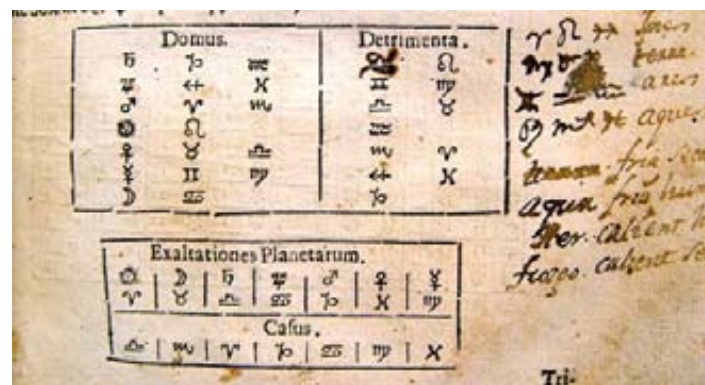 Domus. Detrimenta.
♄ ♑ ♒ ♌
♃ ♐ ♓ ♊ ♍
♂ ♈ ♏ ♎ ♉
☉ ♌ ♒
♀ ♉ ♎ ♏ ♈
☿ ♊ ♍ ♐ ♓
☽ ♋ ♑
Exaltationes Planetarum.
☉ ☽ ♄ ♃ ♂ ♀ ☿
♈ ♉ ♎ ♋ ♑ ♓ ♍
Casus.
♎ ♏ ♈ ♑ ♋ ♍ ♓
♈ ♌ ♐
terre.
aques
fria
aqua fria hum
calient
fuego. calient se
Tri-